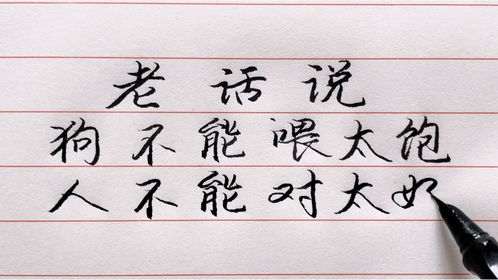 老话说
狗不能喂太饱
人不能对太好